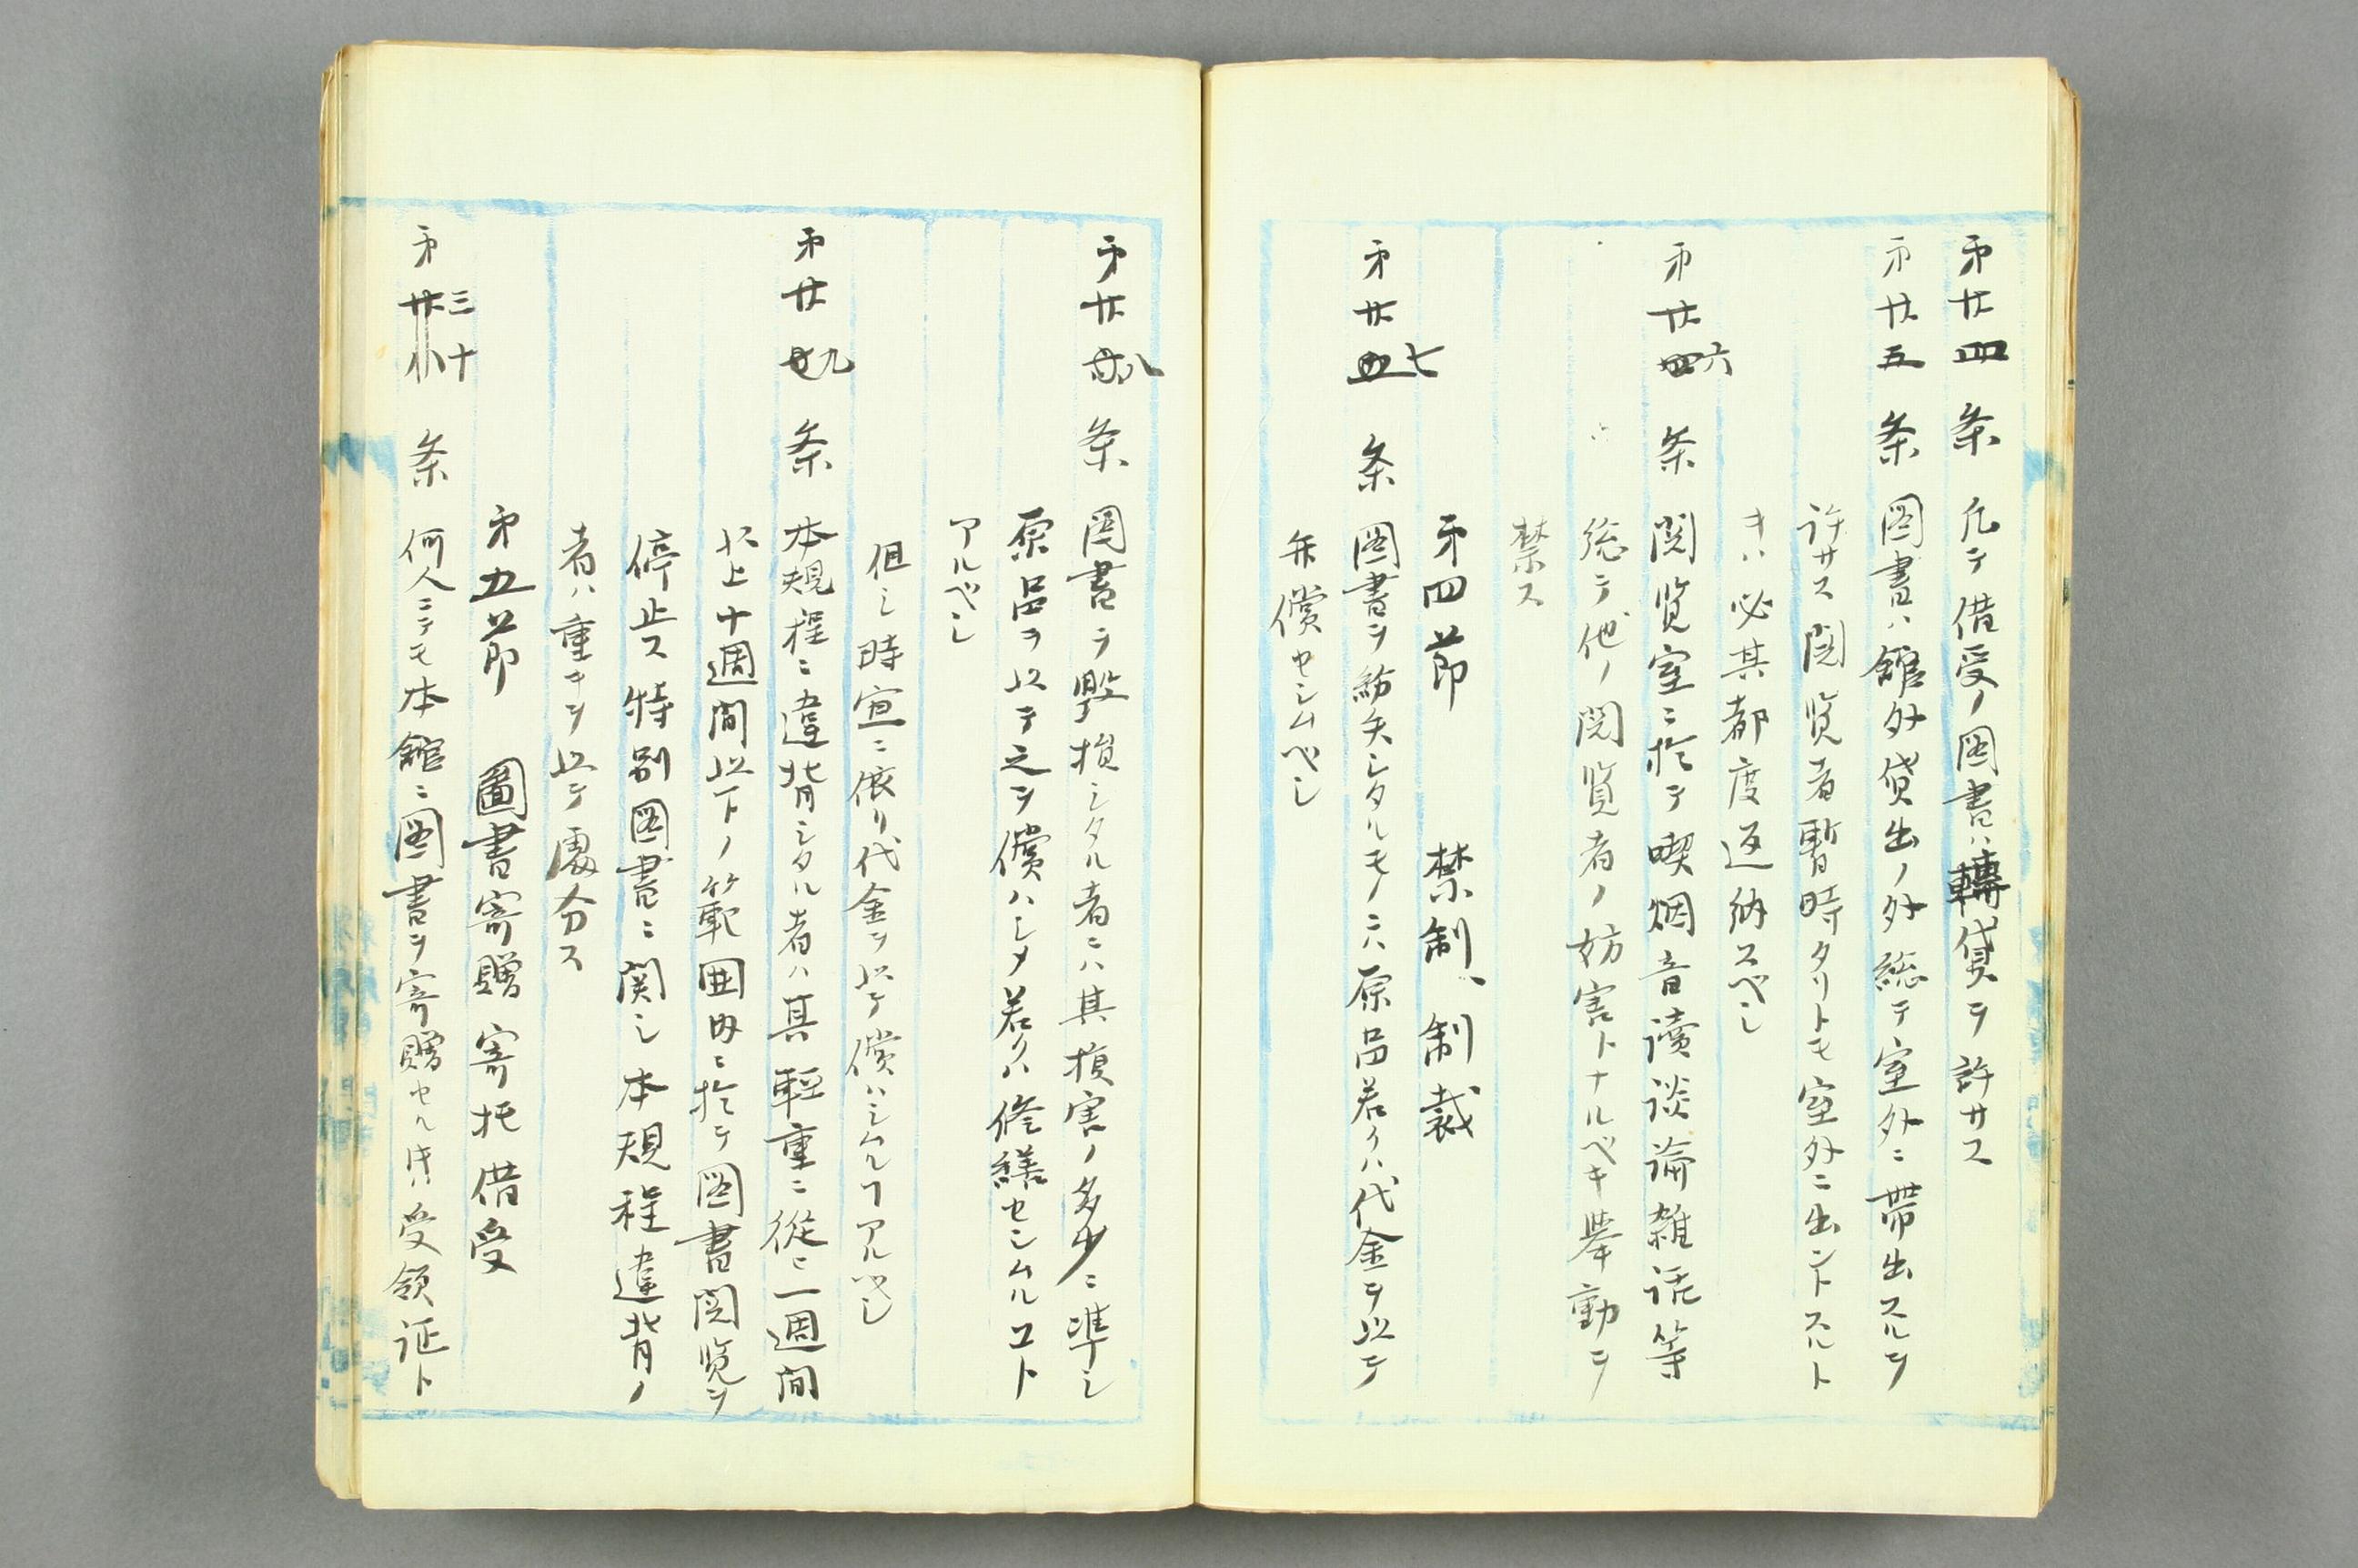 第廿四条 凡テ借受ノ図書ハ轉貸ヲ許サス
第廿五条 図書ハ館外貸出ノ外総テ室外ニ帯出スルヲ
許サス閲覧者暫時タリトモ室外ニ出ントスルト
キハ必其都度返納スベシ
第廿六条 閲覧室ニ於テ喫烟音讀談論雑話等
総テ他ノ閲覧者ノ妨害トナルベキ挙動ヲ
禁ス
第四節 禁制、制裁
第廿七条 図書ヲ紛失シタルモノニハ原品若クハ代金ヲ以テ
弁償セシムベシ
第廿八条 図書ヲ毀損シタル者ニハ其損害ノ多少ニ準シ
原品ヲ以テ之ヲ償ハシメ若クハ修繕セシムルコト
アルベシ
但シ時宜ニ依リ代金ヲ以テ償ハシムルヿアルベシ
第廿九条 本規程ニ違背シタル者ハ其軽重ニ従ヒ一週間
以上十週間以下ノ範囲内ニ於テ図書閲覧ヲ
停止ス特別図書ニ関シ本規程違背ノ
者ハ重キヲ以テ處分ス
第五節 圖書寄贈寄托借受
第三十条 何人ニテモ本館ニ図書ヲ寄贈セル片ハ受領証ト